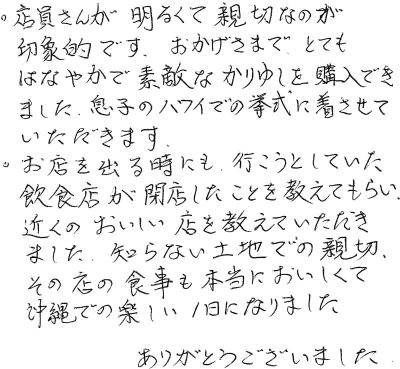 。店員さんが 明るくて 親切なのが
印象的です. おかげさまで. とても
はなやかで 素敵な かりゆしを 購入でき
ました. 息子のハワイでの挙式に着させて
いただきます.
。お店を出る時にも. 行こうとしていた
飲食店が閉店したことを教えてもらい.
近くの おいしい 店を教えていただき
ました. 知らない土地での親切.
その店の食事も本当においしくて
沖縄での楽しい 1日になりました
ありがとうございました.